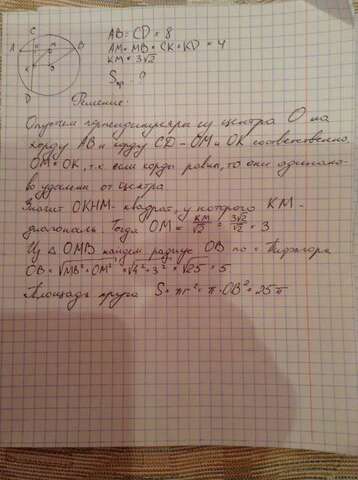 AB = CD = 8
AM = MB = CK = KD = 4
KM = 3√2
Sкр ?
Решение:
Опустим перпендикуляры из центра O на
хорду AB и хорду CD - OM и OK соответственно.
OM = OK, т.к. если хорды равны, то они одинако-
во удалены от центра
Значит OKHM - квадрат, у которого KM -
диагональ. Тогда OM = KM/√2 = 3√2/√2 = 3
Из △ OMB найдем радиус OB по т. Пифагора
OB = √MB²+OM² = √4²+3² = √25 = 5
Площадь круга S = πr² = π·OB² = 25π
C
A
B
D